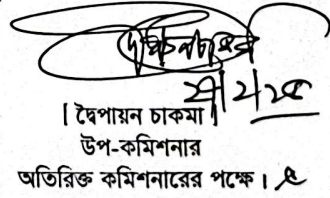 [ দ্বৈপায়ন চাকমা ]
উপ-কমিশনার
অতিরিক্ত কমিশনারের পক্ষে।